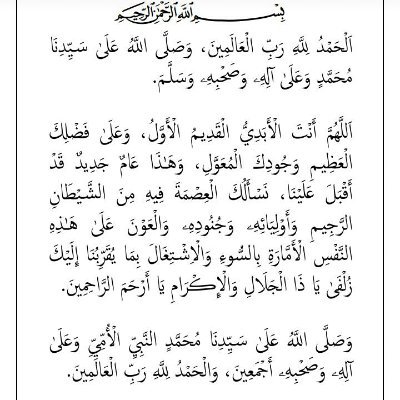 بِسْمِ اللَّهِ الرَّحْمَٰنِ الرَّحِيمِ
اَلْحَمْدُ لِلَّهِ رَبِّ الْعَالَمِينَ، وَصَلَّى اللَّهُ عَلَىٰ سَيِّدِنَا
مُحَمَّدٍ وَعَلَىٰ آلِهِۦ وَصَحْبِهِۦ وَسَلَّمَ.
اَللَّهُمَّ أَنْتَ الْأَبَدِيُّ الْقَدِيمُ الْأَوَّلُ، وَعَلَىٰ فَضْلِكَ
الْعَظِيمِ وَجُودِكَ الْمُعَوَّلِ، وَهَٰذَا عَامٌ جَدِيدٌ قَدْ
أَقْبَلَ عَلَيْنَا، نَسْأَلُكَ الْعِصْمَةَ فِيهِ مِنَ الشَّيْطَانِ
الرَّجِيمِ وَأَوْلِيَائِهِۦ وَجُنُودِهِۦ وَالْعَوْنَ عَلَىٰ هَٰذِهِ
النَّفْسِ الْأَمَّارَةِ بِالسُّوءِ وَالْاِشْتِغَالَ بِمَا يُقَرِّبُنَا إِلَيْكَ
زُلْفَىٰ يَا ذَا الْجَلَالِ وَالْإِكْرَامِ يَا أَرْحَمَ الرَّاحِمِينَ.
وَصَلَّى اللَّهُ عَلَىٰ سَيِّدِنَا مُحَمَّدٍ النَّبِيِّ الْأُمِّيِّ وَعَلَىٰ
آلِهِۦ وَصَحْبِهِۦ أَجْمَعِينَ، وَالْحَمْدُ لِلَّهِ رَبِّ الْعَالَمِينَ.